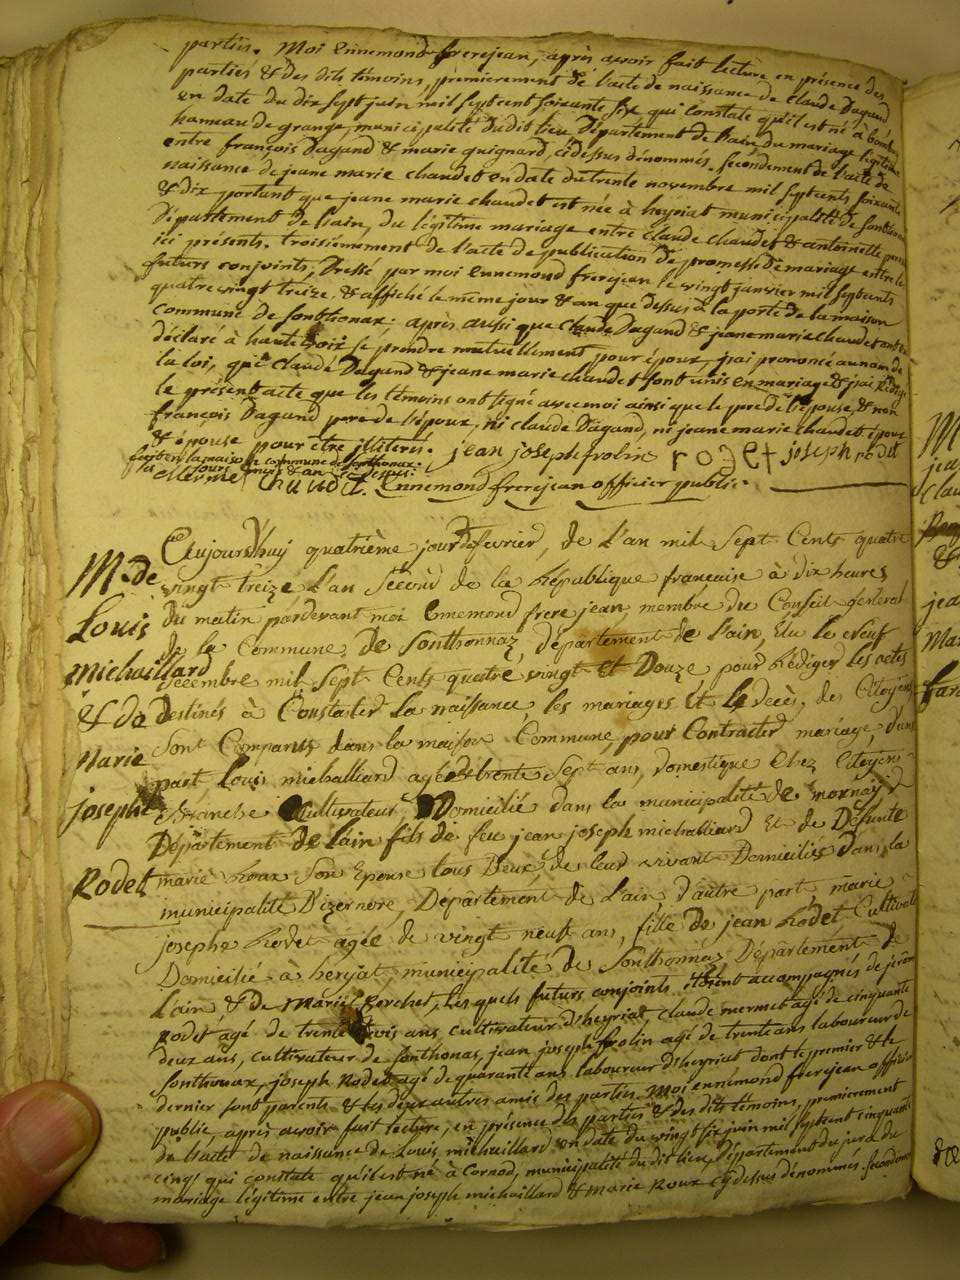 parties. Moi Ennemond frerejean, après avoir fait lecture en présence des
parties & des dits témoins, premierement de l'acte de naissance de Claude Dagand
en date du dix sept juin mil sept cent soixante six qui constate qu'il est né à
hameau de grange, municipalité dudit lieu, Département de l'ain, du mariage légitime
entre françois Dagand & marie guignard, cidessus dénommés. secondement de l'acte de
naissance de jeane marie chaudet en date du trente novembre mil sept cents soixante
& dix portant que jeane marie chaudet est née à heyriat municipalité de sonthonax
Département de l'ain, du légitime mariage entre claude chaudet & antoinette
ici présents. troisiémement de l'acte de publication de promesse de mariage entre les
futurs conjoints, Dressé par moi Ennemond frerejean le vingt janvier mil sept cents
quatre vingt treize, & affiché le même jour & an que dessus à la porte de la maison
commune de sonthonax: après aussi que Claude Dagand & jeane marie chaudet ont
déclaré à haute voix se prendre mutuellement pour époux, j'ai prononcé au nom de
la loi, que Claude Dagand & jeane marie chaudet sont unis en mariage & j'ai rédigé
le présent acte que les témoins ont signé avec moi ainsi que le pere de l'épouse, & non
françois Dagand pere de l'époux, ni claude Dagand, ni jeane marie chaudet époux
& épouse pour etre illiterés. jean joseph frolin rodet joseph rodet
fait en la maison commune de Sonthonax
les jours mois & an que dessus:
claude chaudet. Ennemond frerejean officier public.
Aujourd'huy quatrième jour de fevrier, de L'an mil Sept Cents quatre
vingt treize L'an Second de la République française à dix heures
du matin pardevant moi Ennemond frere jean, membre du Conseil general
de la Commune de Sonthonnax, département de L'ain, Elu le Neuf
Decembre mil Sept Cents quatre vingt Et Douze pour Rédiger les actes
Destinés à Constater La naissance, les mariages Et le decès, de Citoyens
Sont Comparus dans la maison Commune, pour Contracter mariage, d'une
part, Louis michalliard agé de trente Sept ans, domestique Chez Citoyen
Cultivateur Domicilié dans la municipalité de mornay
Département de Lain fils de feu jean joseph michalliard Et de Defunte
marie Roux Son Epouse tous Deux, de leur vivant Domiciliés Dans la
municipalité D'izernore, Département de L'ain D'autre part, marie
josephe Rodet agée de vingt neuf ans, fille de jean Rodet Cultivateur
Domicilié à heyriat municipalité de Sonthonnax Département de
L'ain & de Marie, Les quels futurs conjoints étoient accompagnés de jérôme
rodet agé de trente trois ans cultivateur d'heyriat, claude mermet agé de cinquante
deux ans, cultivateur de sonthonax, jean joseph frolin agé de trente ans laboureur de
sonthonax, joseph Rodet agé de quarante ans laboureur d'heyriat dont le premier & le
dernier sont parents & les deux autres amis des parties. Moi ennémond frerejean officier
public, après avoir fait lecture, en présence des parties & des dits témoins, premièrement
de l'acte de naissance de Louis michaillard en date du vingt six juin mil sept cent cinquante
cinq qui constate qu'il est né à Cornod, municipalité du dit lieu, Département du jura du
mariage légitime entre jean joseph michaillard & marie Roux cy dessus dénommés. secondement
M. de
Louis
Michaillard
& de
Marie
josephe
Rodet